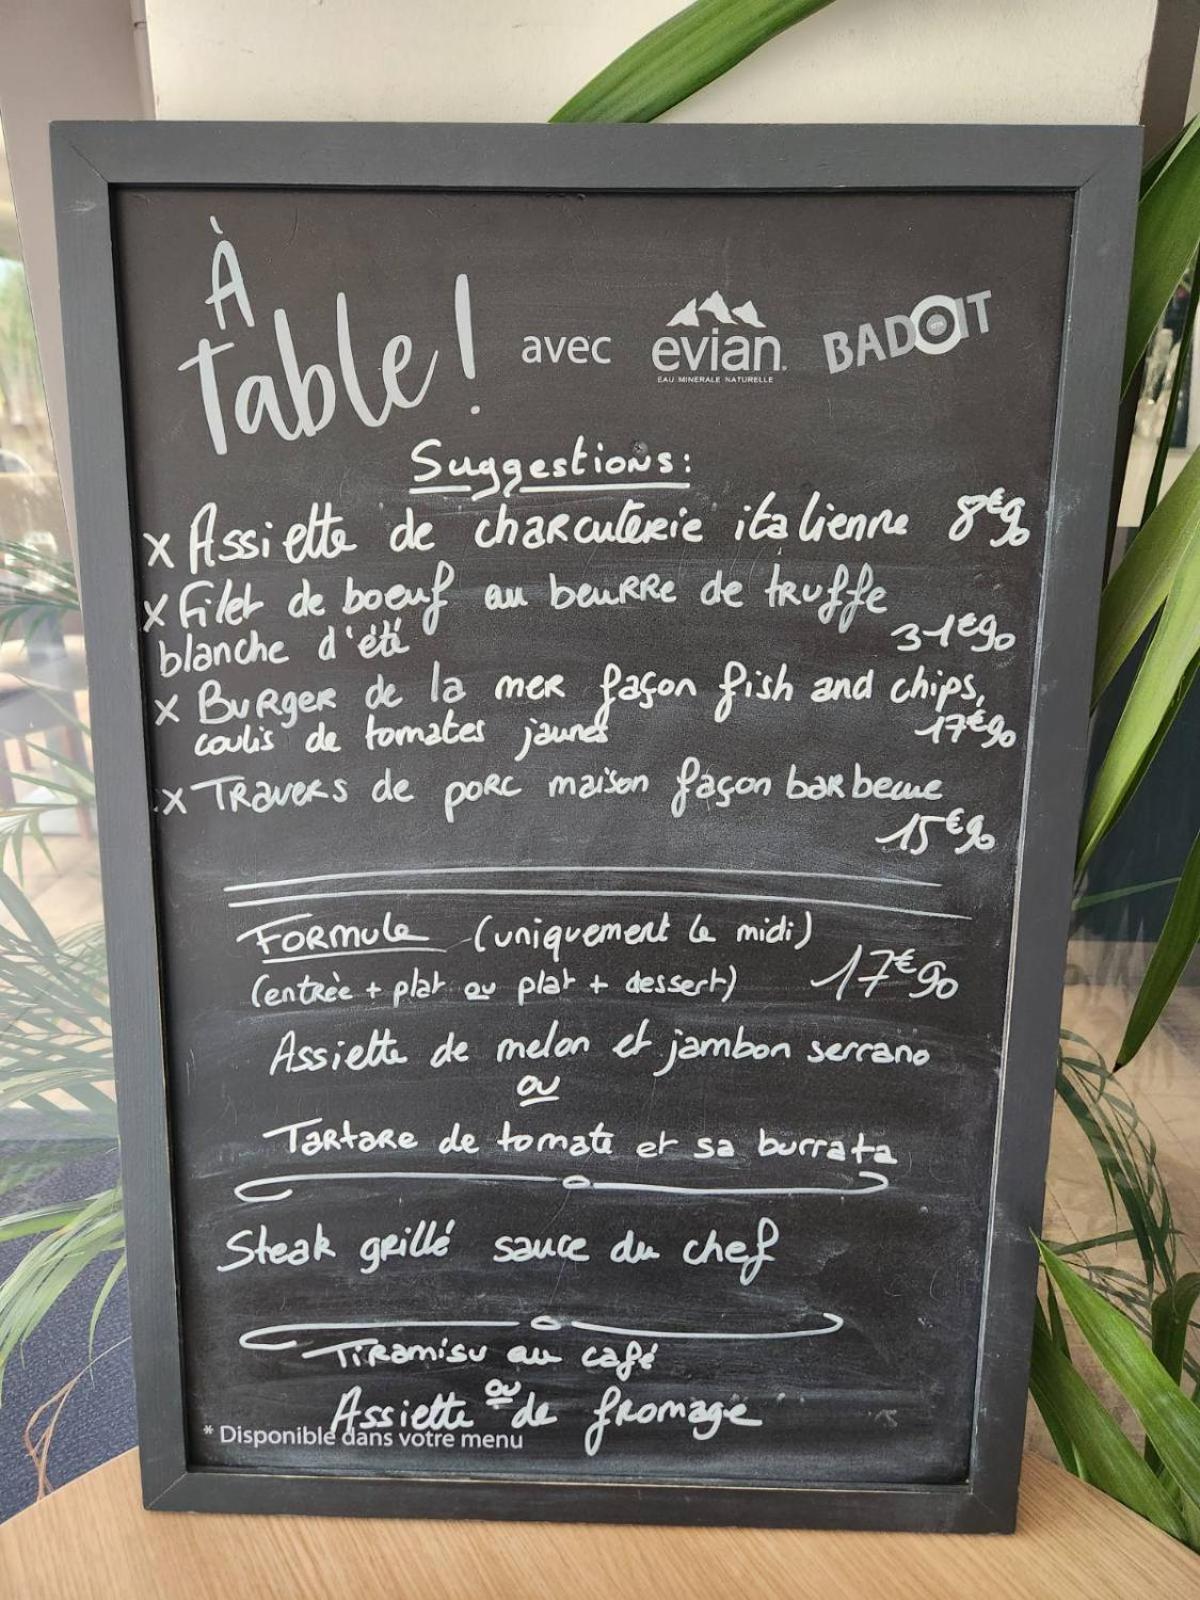 À
Table! avec evian. BADOIT
EAU MINERALE NATURELLE
Suggestions:
x Assiette de charcuterie italienne 8€90
x Filet de boeuf au beurre de truffe
blanche d'été 31€90
x Burger de la mer façon fish and chips,
coulis de tomates jaunes 17€90
x Travers de porc maison façon barbecue
15€90
Formule (uniquement le midi)
(entrèe + plat ou plat + dessert) 17€90
Assiette de melon et jambon serrano
ou
Tartare de tomate et sa burrata
Steak grillé sauce du chef
Tiramisu au café
ou
Assiette de fromage
* Disponible dans votre menu